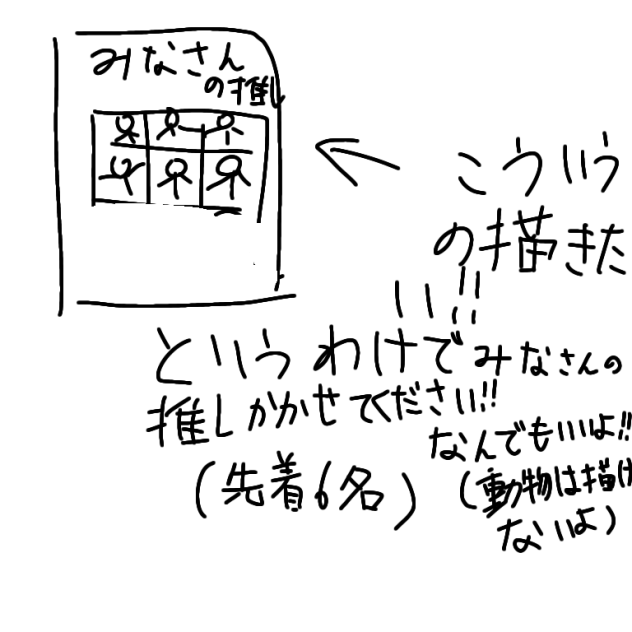 みなさん
の推し
こういう
の描きた
い!!
というわけでみなさんの
推しかかせてください!!
なんでもいいよ!!
(先着6名)
(動物は描け
ないよ)